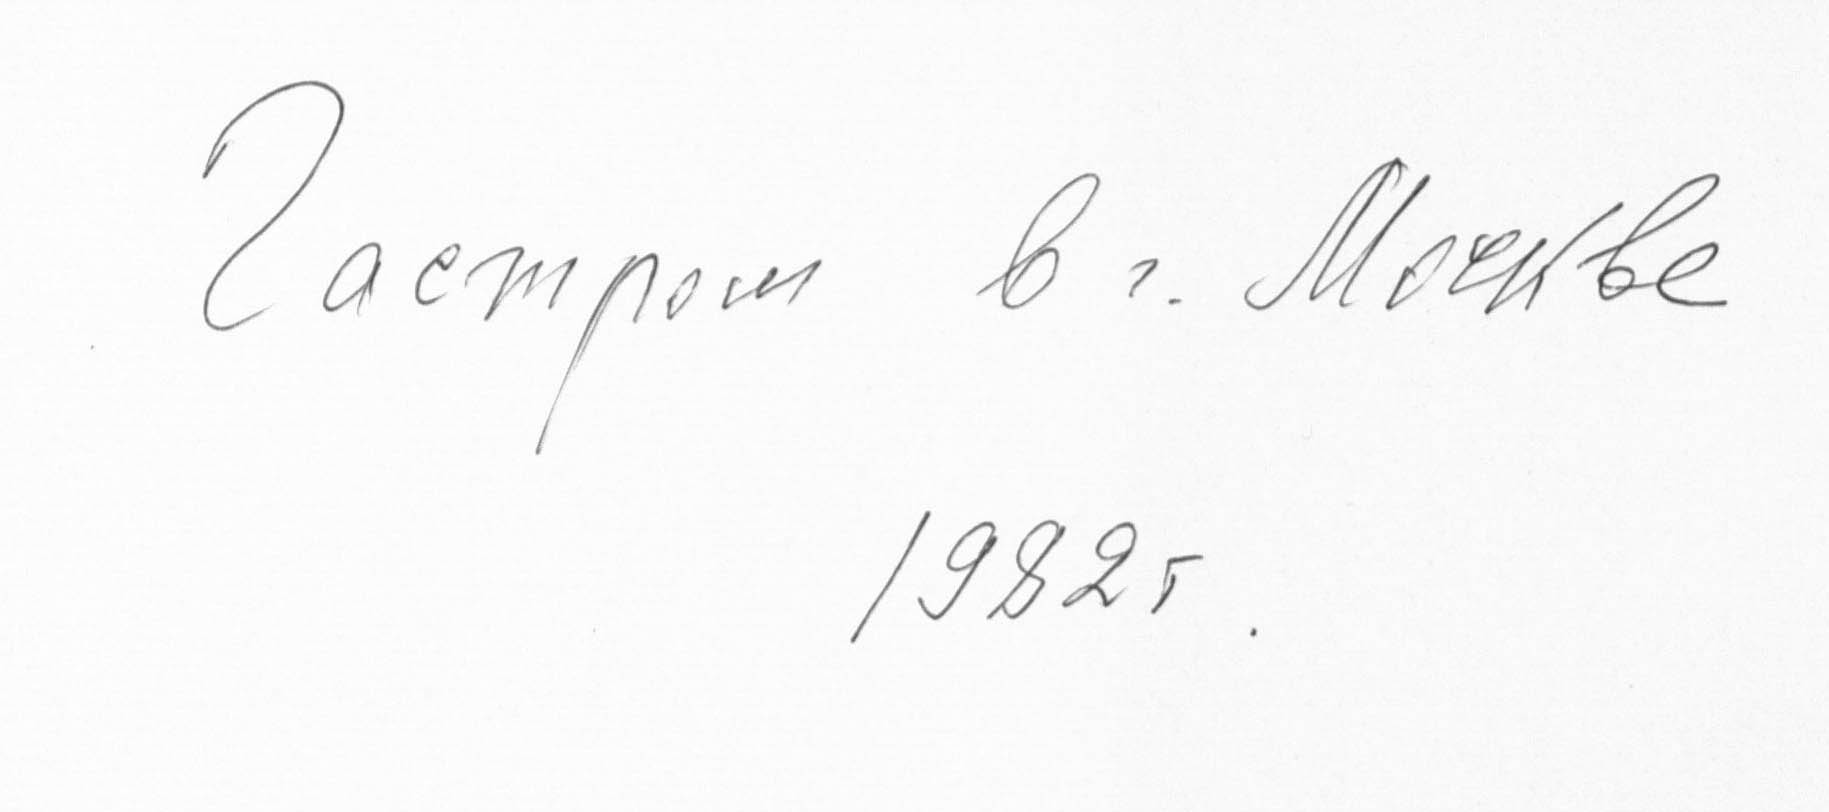 Гастроли в г. Москве
1982 г.